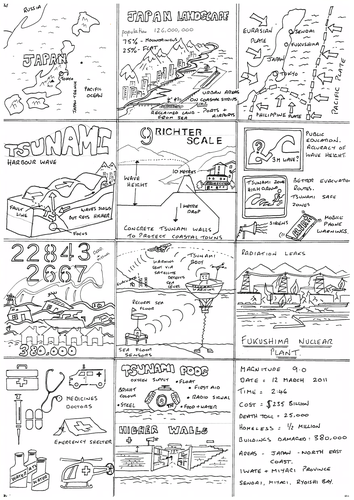 RUSSIA
JAPAN
JAPAN TRENCH
PACIFIC
OCEAN
JAPAN LANDSCAPE
population 126,000,000
75% - MOUNTAINOUS
25% - FLAT
URBAN AREAS
ON COASTAL STRIPS
RECLAIMED LAND
FROM SEA
PORTS +
AIRPORTS
EURASIAN
PLATE
SENDAI
FUKUSHIMA
JAPAN
TOKYO
PACIFIC PLATE
PHILIPPINE PLATE
TSUNAMI
HARBOUR WAVE
FAULT
LINE
FOCUS
9 RICHTER
SCALE
WAVE
HEIGHT
10 METRES
1 METRE
DROP
CONCRETE TSUNAMI WALLS
TO PROTECT COASTAL TOWNS
PUBLIC
EDUCATION.
OF WAVE HEIGHT.
3M WAVE?
TSUNAMI ZONE
HIGH GROUND
BETTER EVACUATION
ROUTES.
TSUNAMI SAFE
ZONES
SIRENS
MOBILE PHONE
WARNINGS.
22843
2667
380,000
WARNING
SENT VIA
SATELLITE
TSUNAMI
BUOY
SEA FLOOR
SENSORS
RADIATION LEAKS
FUKUSHIMA NUCLEAR
PLANT.
MEDICINES
DOCTORS
EMERGENCY SHELTER
TSUNAMI PODS
OXYGEN SUPPLY
FLOAT
BRIGHT
COLOUR
FIRST AID
RADIO SIGNAL
STEEL
FOOD + WATER
HIGHER WALLS
MAGNITUDE 9.0
DATE = 12 MARCH 2011
TIME = 2:46
COST = $235 BILLION
DEATH TOLL = 25,000
HOMELESS = ½ MILLION
BUILDINGS DAMAGED: 380,000
AREAS - JAPAN - NORTH EAST
COAST.
IWATE + MIYAGI PROVINCE
SENDAI, MIYAKI, RYOISHI BAY.